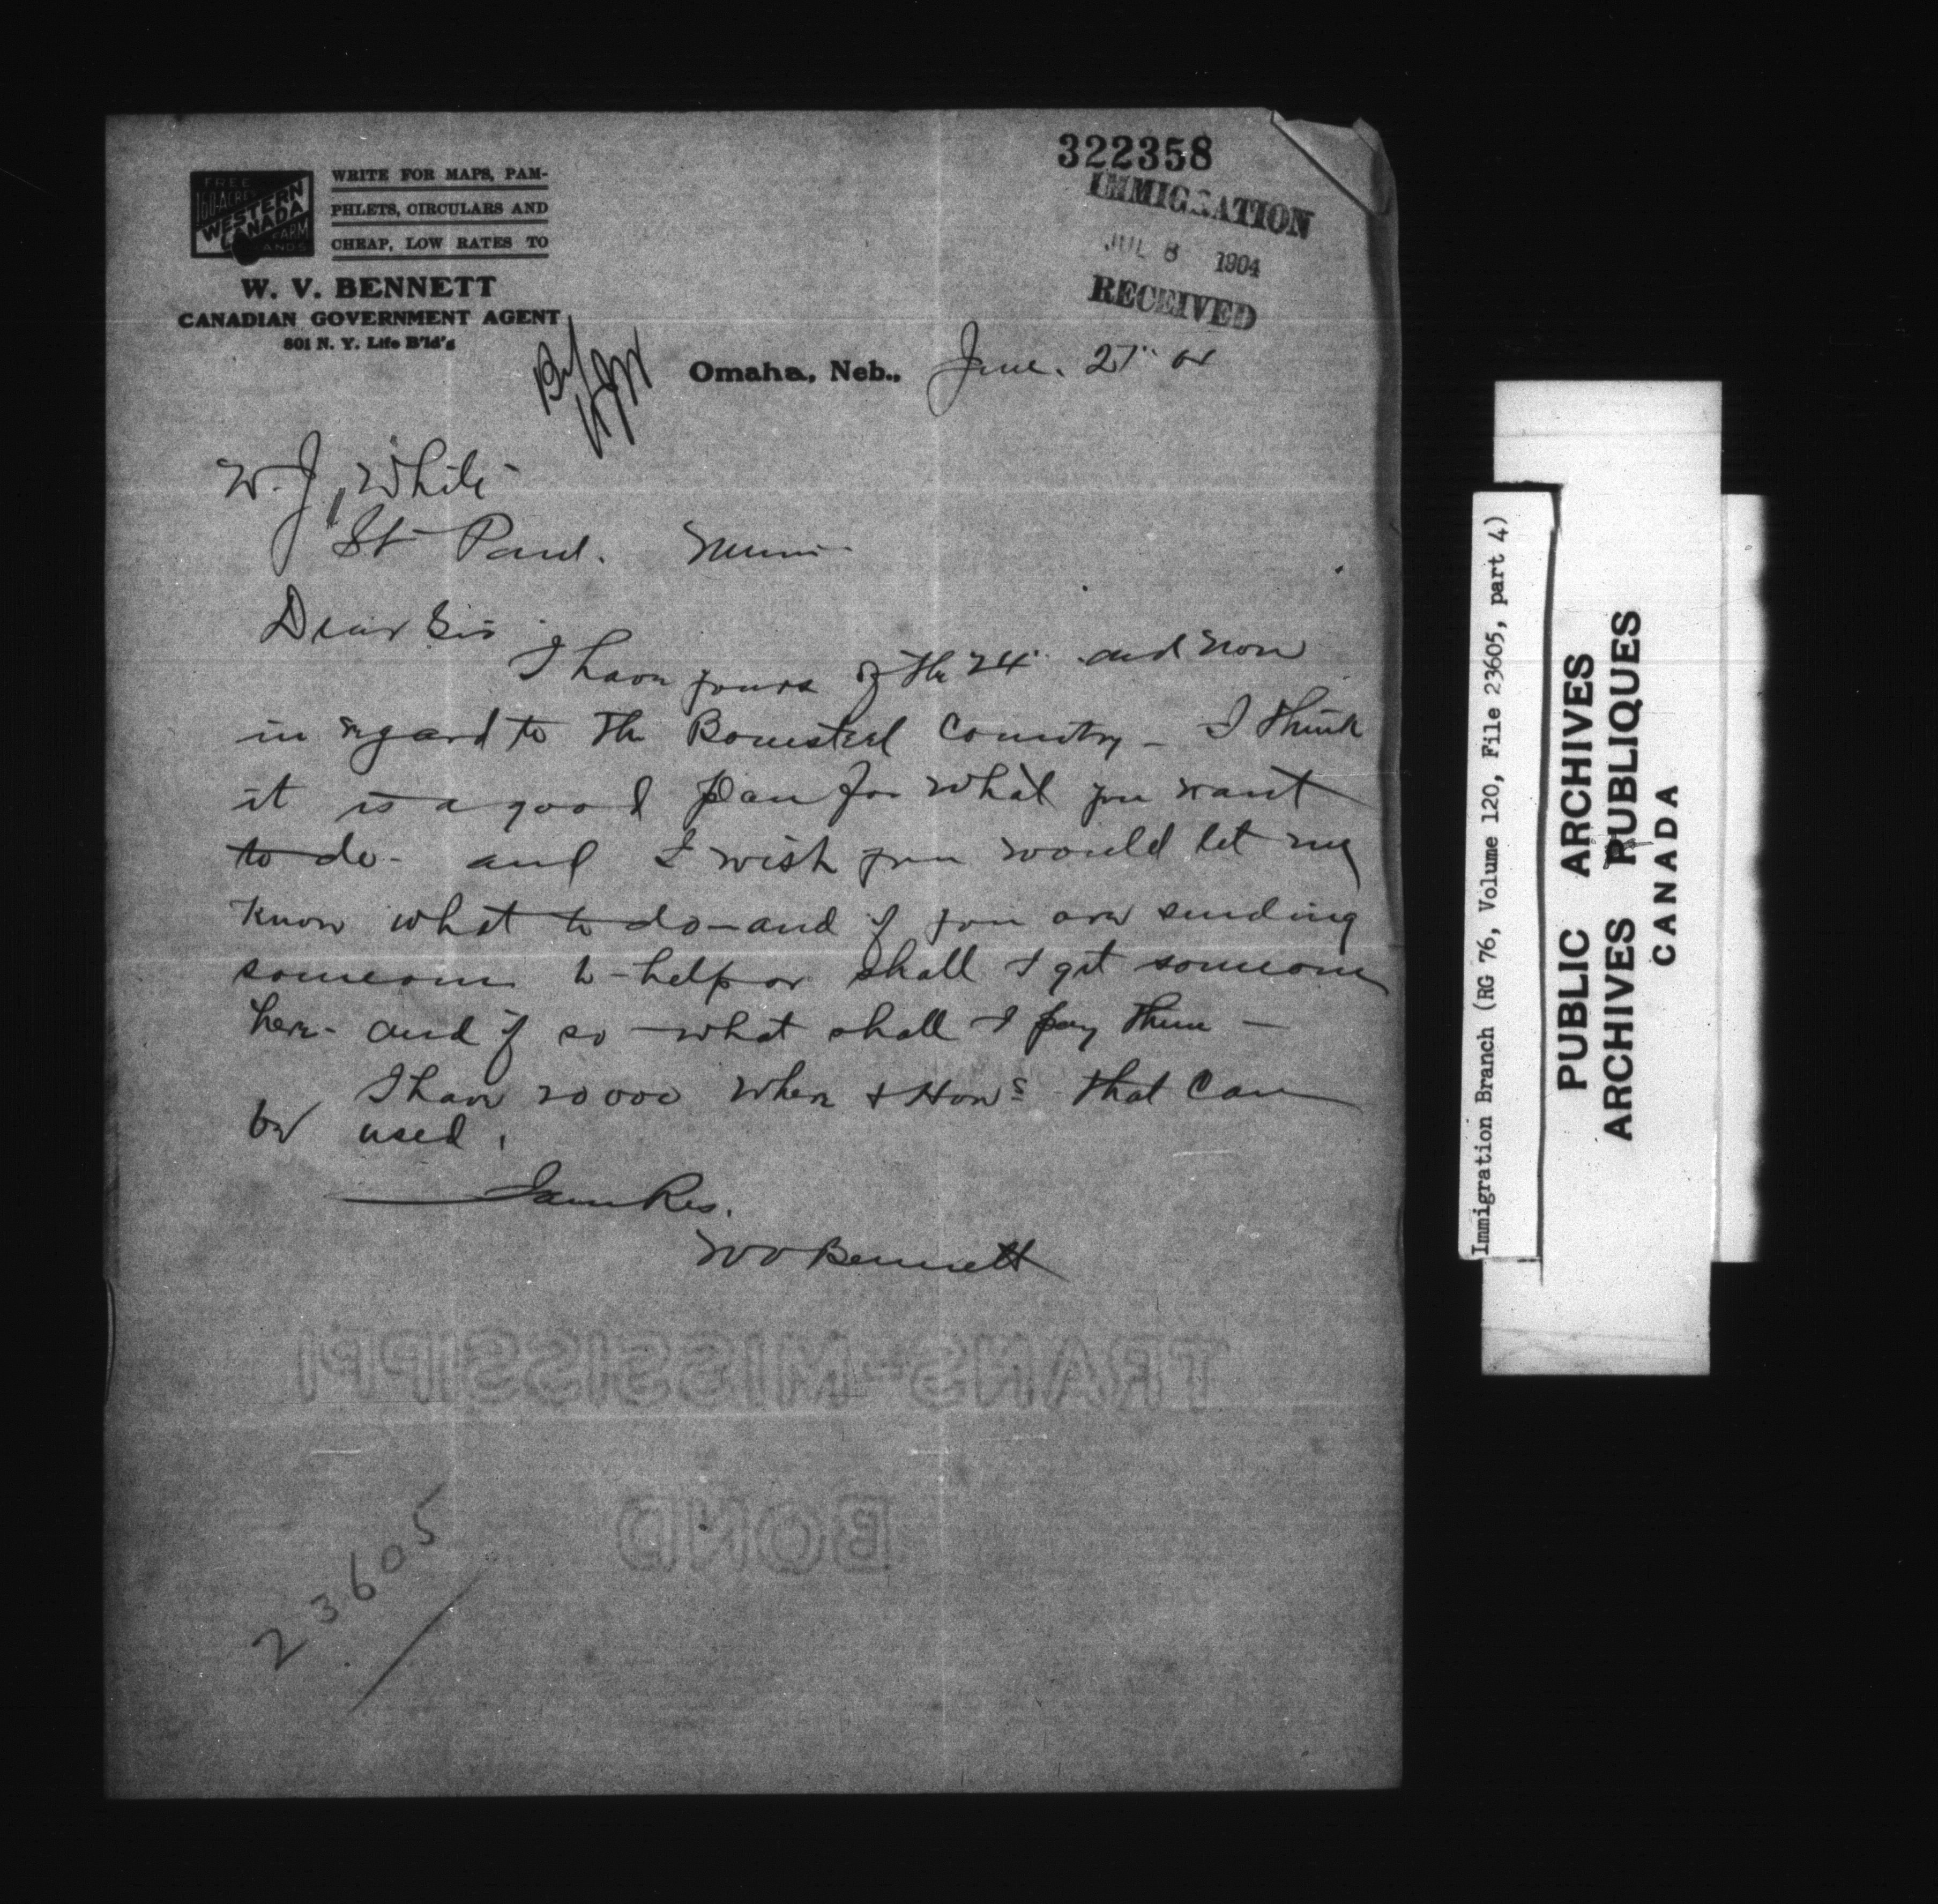 322358
IMMIGRATION
JUL 8 1904
RECEIVED
FREE
160 ACRE
WESTERN
CANADA
FARM
LANDS
WRITE FOR MAPS, PAM-
PHLETS, CIRCULARS AND
CHEAP, LOW RATES TO
W. V. BENNETT
CANADIAN GOVERNMENT AGENT
801 N. Y. Life B'ld'g
Omaha, Neb., June. 27" 04
W. J. White
St Paul. Minn
Dear Sir
I have yours of the 24 and now
in regard to the Bonesteel Country - I think
it is a good plan for what you want
to do - and I wish you would let me
know what to do - and if you are sending
someone to help or shall I get someone
here - and if so - what shall I pay them -
I have 20000 Where & Hows that can
be used.
I am Res.
W V Bennett
TRANS-MISSISSIPPI
BOND
23605
Immigration Branch (RG 76, Volume 120, File 23605, part 4)
PUBLIC ARCHIVES
ARCHIVES PUBLIQUES
CANADA